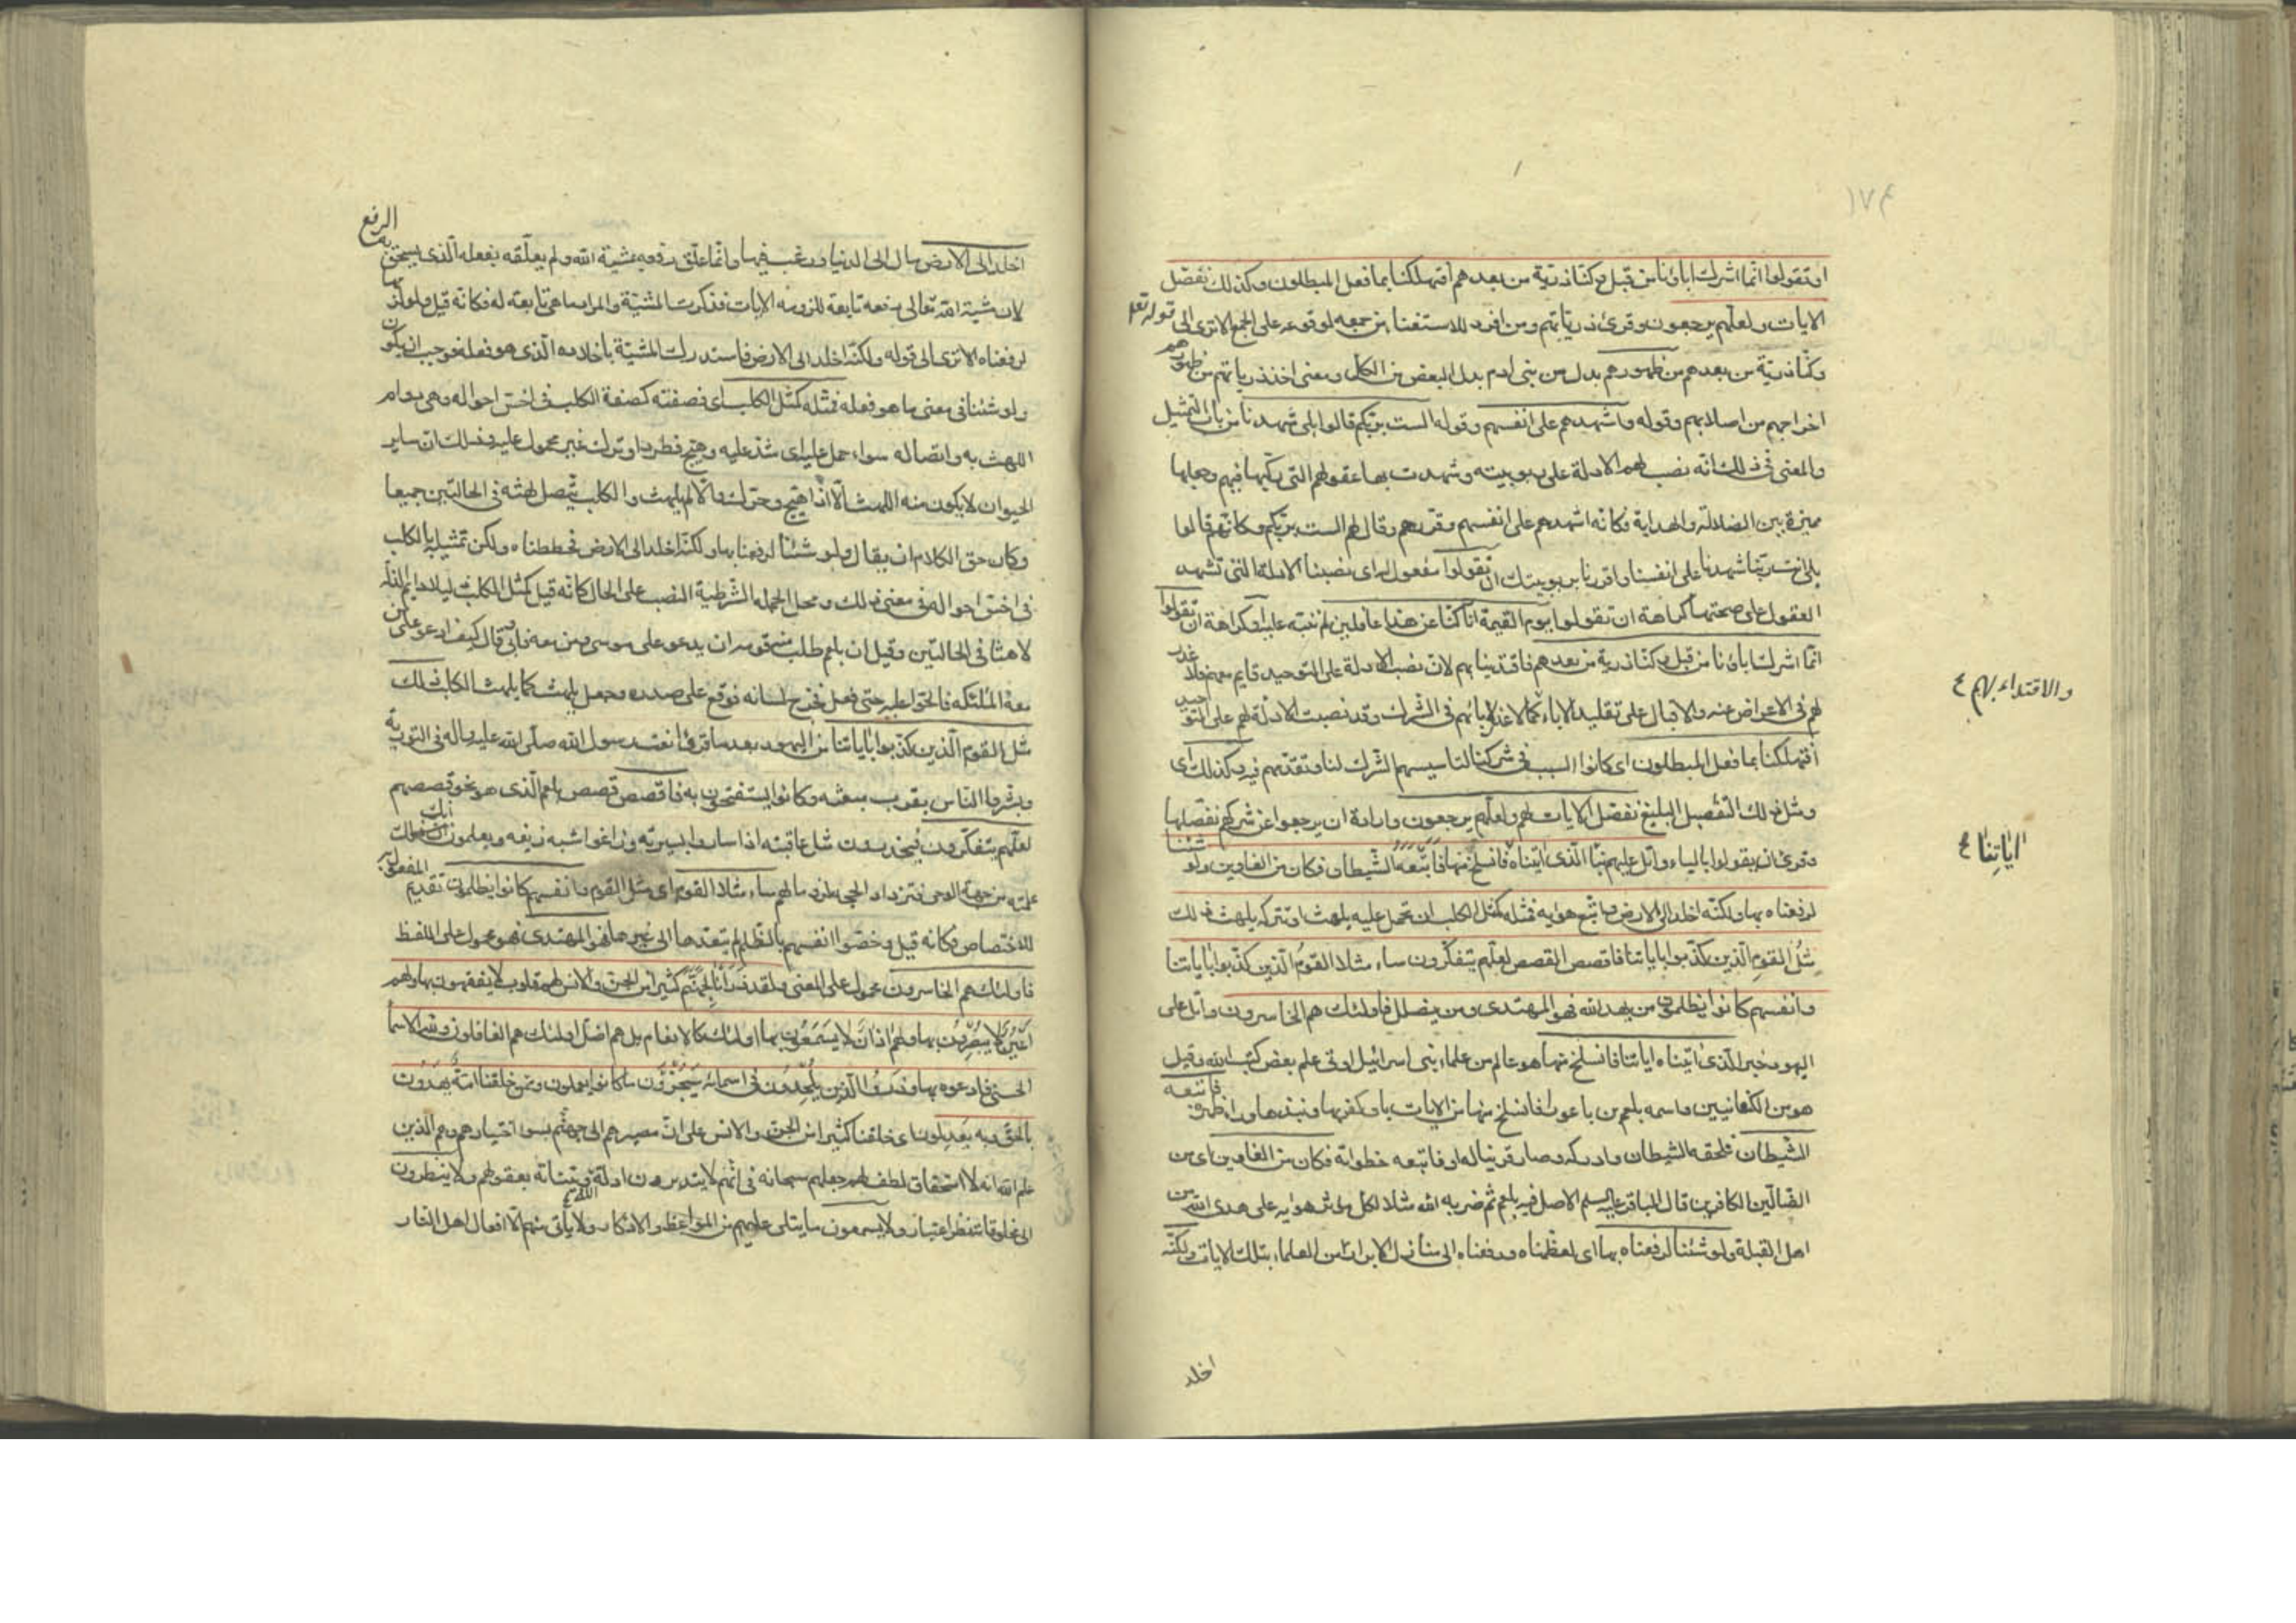 ١٧٤
او تقولوا انما اشرك اباؤنا من قبل وكنا ذرية من بعدهم افتهلكنا بما فعل المبطلون وكذلك نفصل
الايات ولعلهم يرجعون وقرئ ذرياتهم ومن افرد للاستغناء عن جمعه لوقوعه على الجمع الا ترى الى قوله تعالى
وكنا ذرية من بعدهم من ظهورهم بدل من بنى ادم بدل البعض من الكل ومعنى اخذ ذرياتهم من ظهورهم
اخراجهم من اصلابهم وقوله واشهدهم على انفسهم وقوله الست بربكم قالوا بلى شهدنا من باب التمثيل
والمعنى فى ذلك انه نصب لهم الادلة على ربوبيته وشهدت بها عقولهم التى ركبها فيهم وجعلها
مميزة بين الضلالة والهداية فكانه اشهدهم على انفسهم وقررهم وقال لهم الست بربكم وكانهم قالوا
بلى انت ربنا شهدنا على انفسنا واقررنا بربوبيتك ان تقولوا مفعول له اى نصبنا الادلة التى تشهد
العقول على صحتها كراهة ان تقولوا يوم القيمة انا كنا عن هذا غافلين لم ننبه عليه او كراهة ان تقولوا
انما اشرك اباؤنا من قبل وكنا ذرية من بعدهم فاقتدينا بهم لان نصب الادلة على التوحيد قايم معهم فلا عذر
لهم فى الاعراض عنه والاقبال على تقليد الاباء كما لا عذر لابائهم فى الشرك وقد نصبت الادلة لهم على التوحيد
والاقتداء بهم ٤
افتهلكنا بما فعل المبطلون اى كانوا السبب فى شركنا لتاسيسهم الشرك لنا وتقدمهم فيه وكذلك اى
ومثل ذلك التفصيل البليغ نفصل الايات لهم ولعلهم يرجعون وارادة ان يرجعوا عن شركهم نفصلها
وقرئ ان يقولوا بالياء واتل عليهم نبأ الذى اتيناه فانسلخ منها فاتبعه الشيطان فكان من الغاوين ولو شئنا
اياتنا ٤
لرفعناه بها ولكنه اخلد الى الارض واتبع هوايه فمثله كمثل الكلب ان تحمل عليه يلهث او تتركه يلهث ذلك
مثل القوم الذين كذبوا باياتنا فاقصص القصص لعلهم يتفكرون ساء مثلا القوم الذين كذبوا باياتنا
وانفسهم كانوا يظلمون من يهد الله فهو المهتدى ومن يضلل فاولئك هم الخاسرون واتل على
اليهود خبر الذى اتيناه اياتنا فانسلخ منها هو عالم من علماء بنى اسرائيل اوتى علم بعض كتب الله وقيل
هو من الكنعانيين واسمه بلعم بن باعورا فانسلخ منها من الايات بان كفر بها ونبذها وراء ظهره فاتبعه
الشيطان فلحقه الشيطان وادركه وصار قرينا له او فاتبعه خطواته فكان من الغاوين اى من
الضالين الكافرين قال الباقر عليه السلم الاصل فيه بلعم ثم ضربه الله مثلا لكل مؤثر هوايه على هدى الله من
اهل القبلة ولو شئنا لرفعناه بها اى لعظمناه ورفعناه الى منازل الابرار من العلماء بتلك الايات ولكنه
اخلد
اخلد الى الارض مال الى الدنيا ورغب فيها وانما علق رفعه بمشية الله ولم يعلقه بفعله الذى يستحق به الرفع
لان مشية الله تعالى رفعه تابعة للزومه الايات فذكرت المشية والمراد ما هى تابعة له فكانه قيل ولو لزمها
لرفعناه الا ترى الى قوله ولكنه اخلد الى الارض فاستدرك المشية باخلاده الذى هو فعله فوجب ان يكون
ولو شئنا فى معنى ما هو فعله فمثله كمثل الكلب اى فصفته كصفة الكلب فى اخس احواله وهى دوام
اللهث به واتصاله سواء حمل عليه اى شد عليه وهيج فطرد او ترك غير محمول عليه وذلك ان ساير
الحيوان لا يكون منه اللهث الا اذا هيج وحرك والا لم يلهث والكلب يتصل لهثه فى الحالتين جميعا
وكان حق الكلام ان يقال ولو شئنا لرفعناه بها ولكنه اخلد الى الارض فحططناه ولكن تمثيله بالكلب
فى اخس احواله فى معنى ذلك ومحل الجملة الشرطية النصب على الحال كانه قيل كمثل الكلب ذليلا دايم الذلة
لاهثا فى الحالتين وقيل ان بلعم طلب منه قومه ان يدعو على موسى ومن معه فابى وقال كيف ادعو على من
معه الملئكة فالحوا عليه حتى فعل فخرج لسانه فوقع على صدره وجعل يلهث كما يلهث الكلب ذلك
مثل القوم الذين كذبوا باياتنا من اليهود بعد ما قرؤا نعت رسول الله صلى الله عليه واله فى التورية
وبشروا الناس بقرب مبعثه وكانوا يستفتحون به فاقصص قصص بلعم الذى هو نحو قصصهم
لعلهم يتفكرون فيحذرون مثل عاقبته اذا ساروا بسيرته وزاغوا شبه زيغه ويعلمون انك
علمته من جهة الوحى فتزداد الحجة لزوما لهم ساء مثلا القوم اى مثل القوم وانفسهم كانوا يظلمون تقديم المفعول به
للاختصاص فكانه قيل وخصوا انفسهم بالظلم لم يتعدها الى غيرها فهو المهتدى فهو محمول على اللفظ
فاولئك هم الخاسرون محمول على المعنى ولقد ذرأنا لجهنم كثيرا من الجن والانس لهم قلوب لا يفقهون بها ولهم
اعين لا يبصرون بها ولهم اذان لا يسمعون بها اولئك كالانعام بل هم اضل اولئك هم الغافلون ولله الاسماء
الحسنى فادعوه بها وذروا الذين يلحدون فى اسمائه سيجزون ما كانوا يعملون وممن خلقنا امة يهدون
بالحق وبه يعدلون اى خلقنا كثيرا من الجن والانس على ان مصيرهم الى جهنم بسوء اختيارهم وهم الذين
علم الله انه لا لطف لهم وجعلهم سبحانه فى انهم لا يتدبرون ادلة الله وبيناته بعقولهم ولا ينظرون
الى مخلوقاته نظر اعتبار ولا يسمعون ما يتلى عليهم من المواعظ والاذكار ولا يأتى منهم الا افعال اهل النار